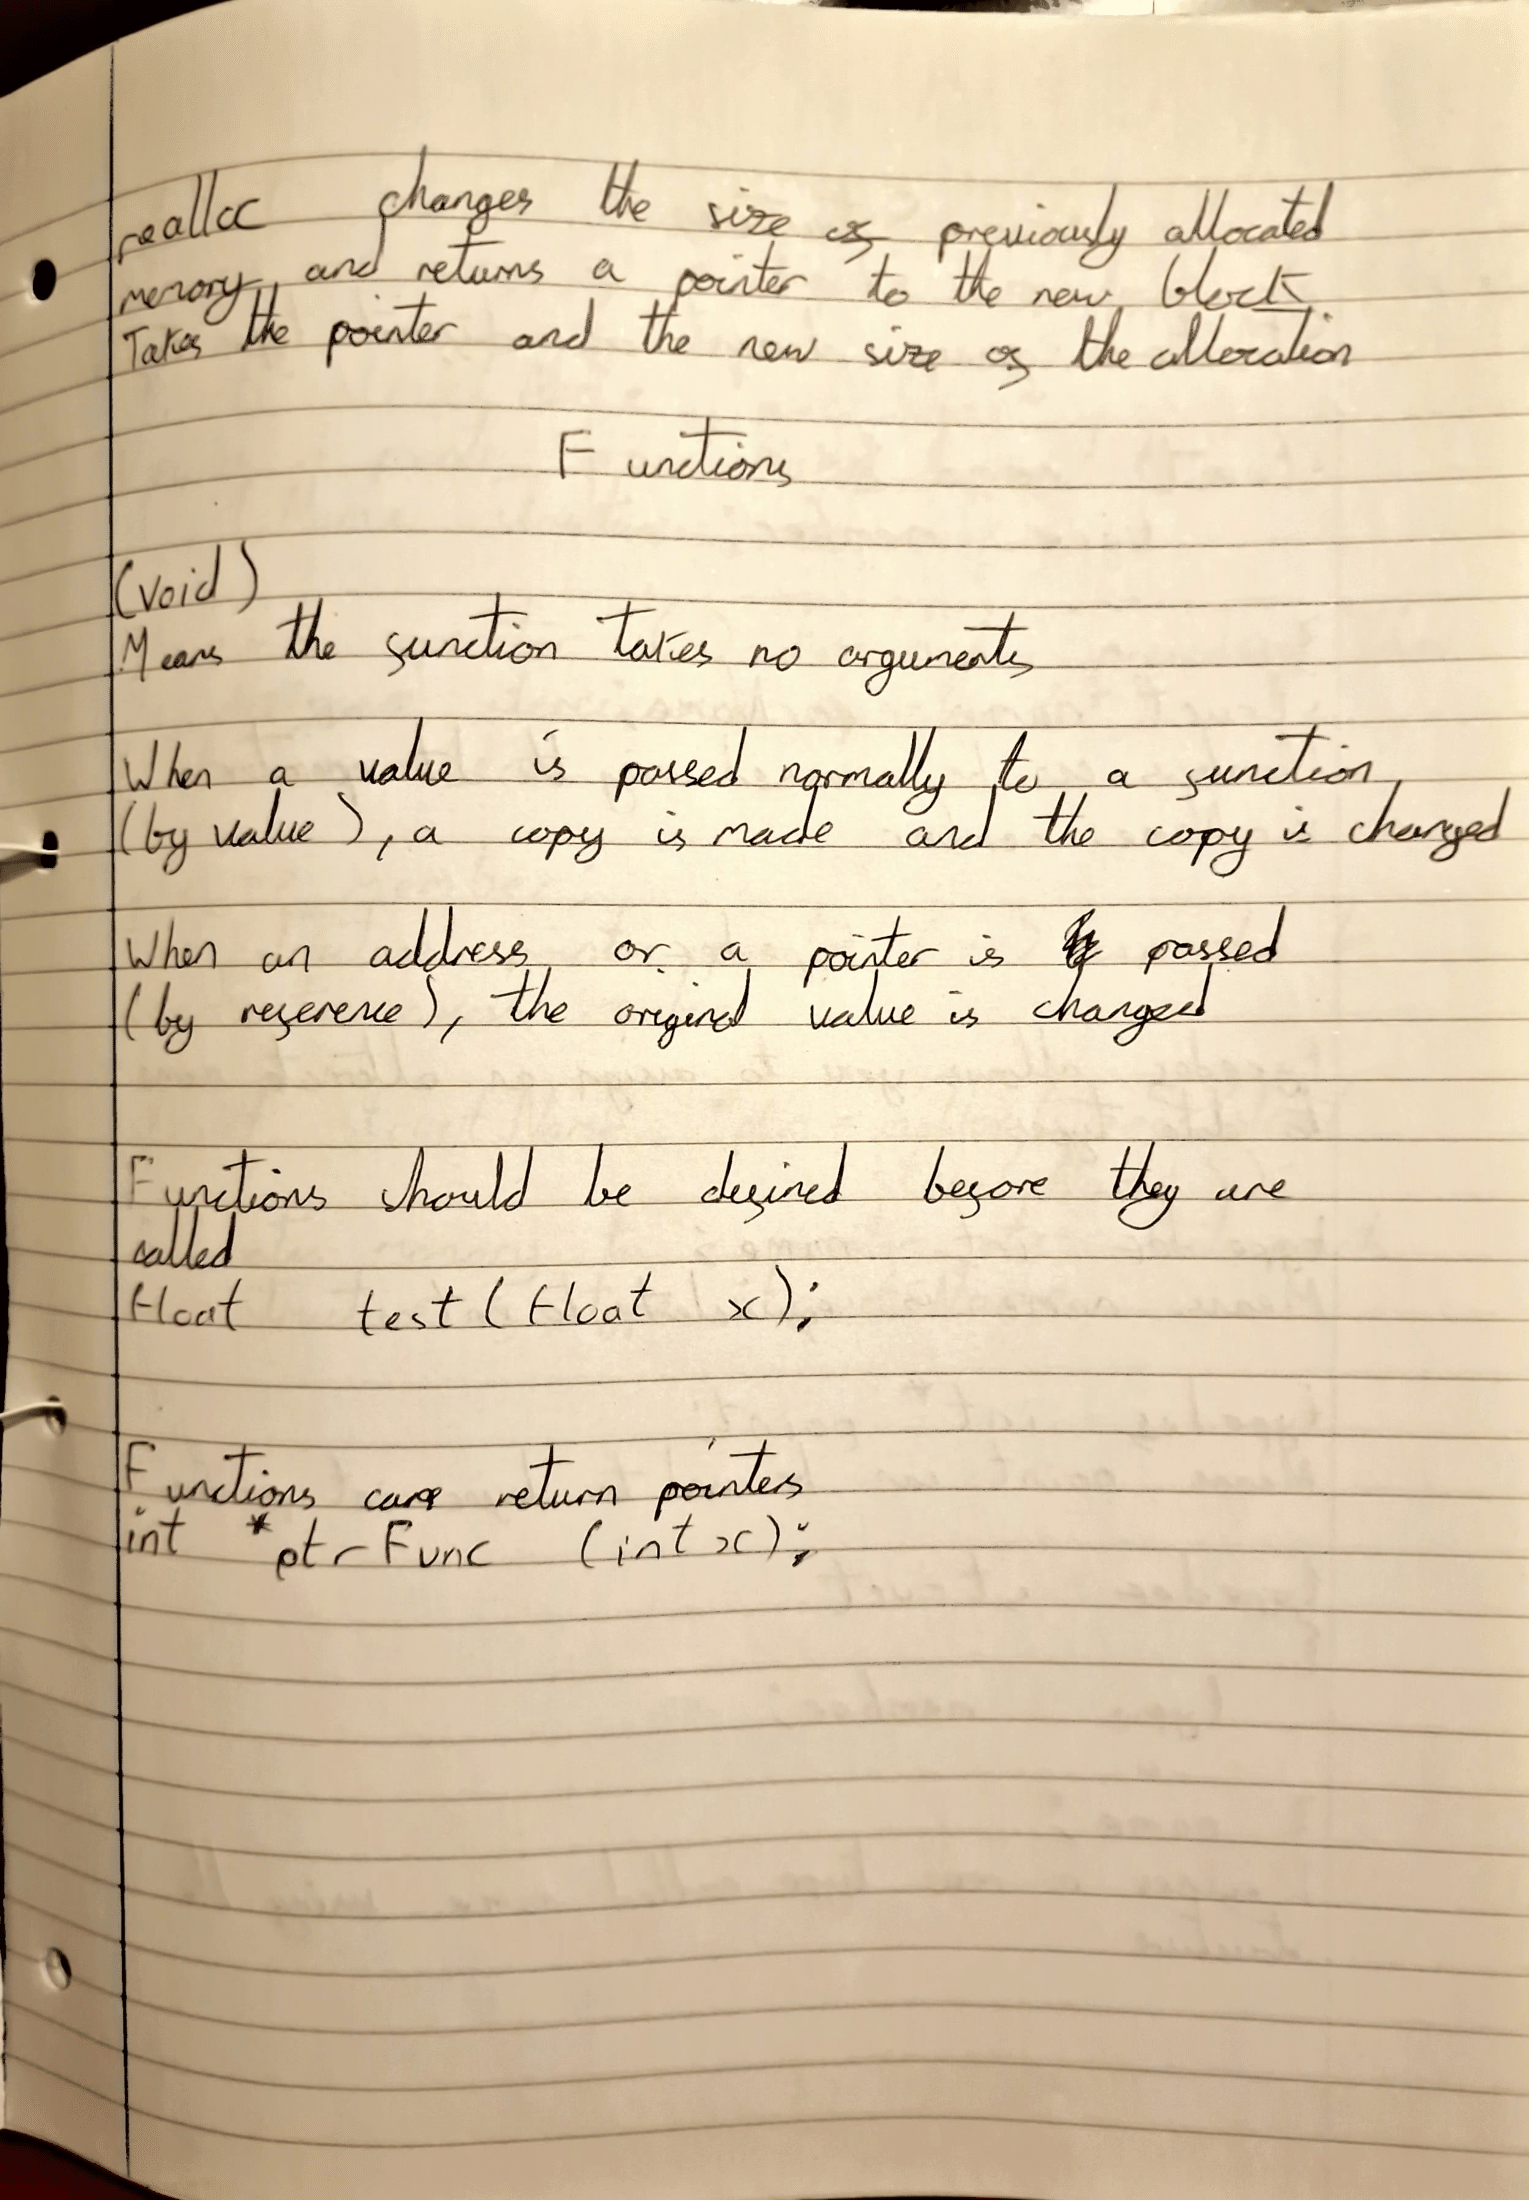 realloc changes the size of previously allocated
memory, and returns a pointer to the new block.
Takes the pointer and the new size of the allocation
Functions
(void)
Means the function takes no arguments
When a value is passed normally to a function,
(by value), a copy is made and the copy is changed
When an address or a pointer is passed
(by reference), the original value is changed
Functions should be defined before they are
called
float test (float x);
Functions can return pointers
int *ptrFunc (int x);